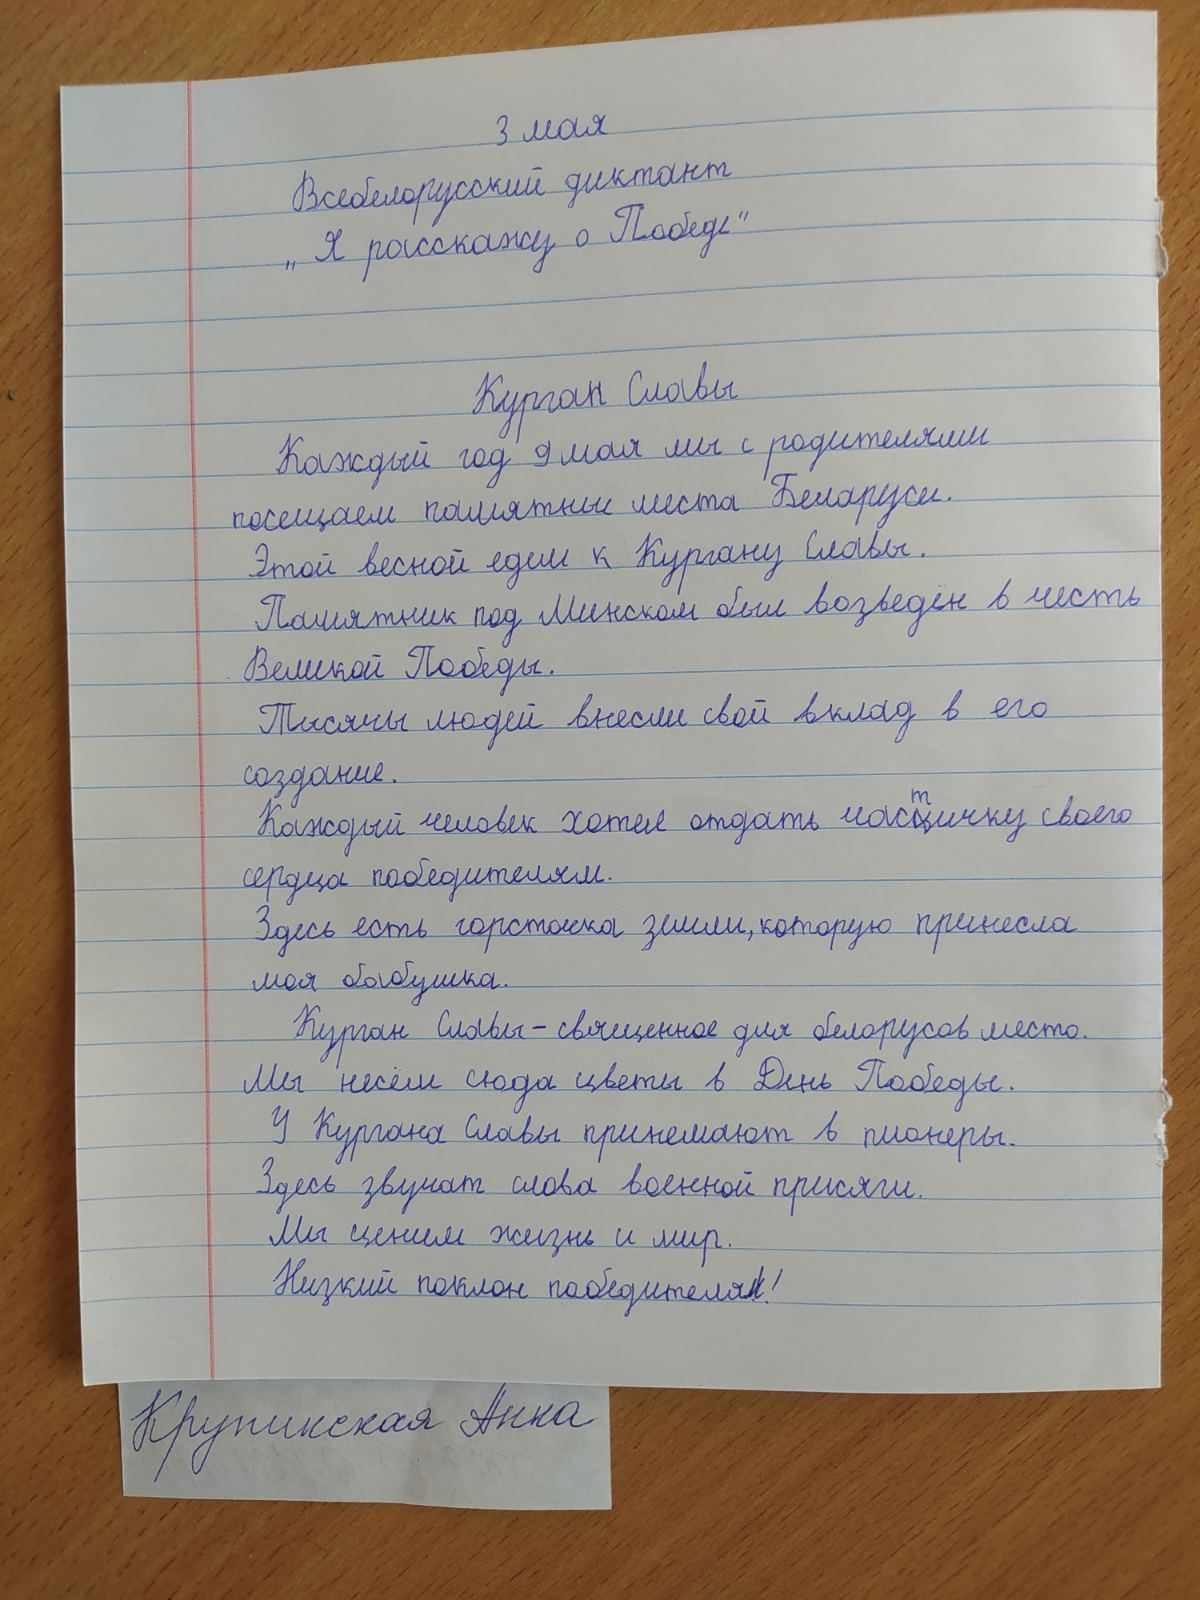 3 мая
Всебелорусский диктант
„Я расскажу о Победе"
Курган Славы
Каждый год 9 мая мы с родителями
посещаем памятные места Беларуси.
Этой весной едем к Кургану Славы.
Памятник под Минском был возведён в честь
Великой Победы.
Тысячи людей внесли свой вклад в его
создание.
Каждый человек хотел отдать частичку своего
сердца победителям.
Здесь есть горсточка земли, которую принесла
моя бабушка.
Курган Славы – священное для белорусов место.
Мы несём сюда цветы в День Победы.
У Кургана Славы принемают в пионеры.
Здесь звучат слова военной присяги.
Мы ценим жизнь и мир.
Низкий поклон победителям!
Крупинская Анна